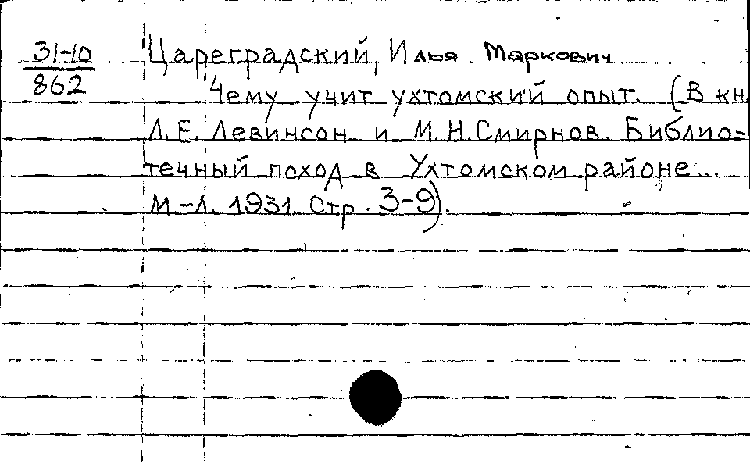 31-10
862
Цареградский, Илья Маркович
Чему учит ухтомский опыт. (В кн.
Л.Е. Левинсон и М.Н. Смирнов. Библио=
течный поход в Ухтомском районе...
М-Л. 1931. Стр. 3-9).